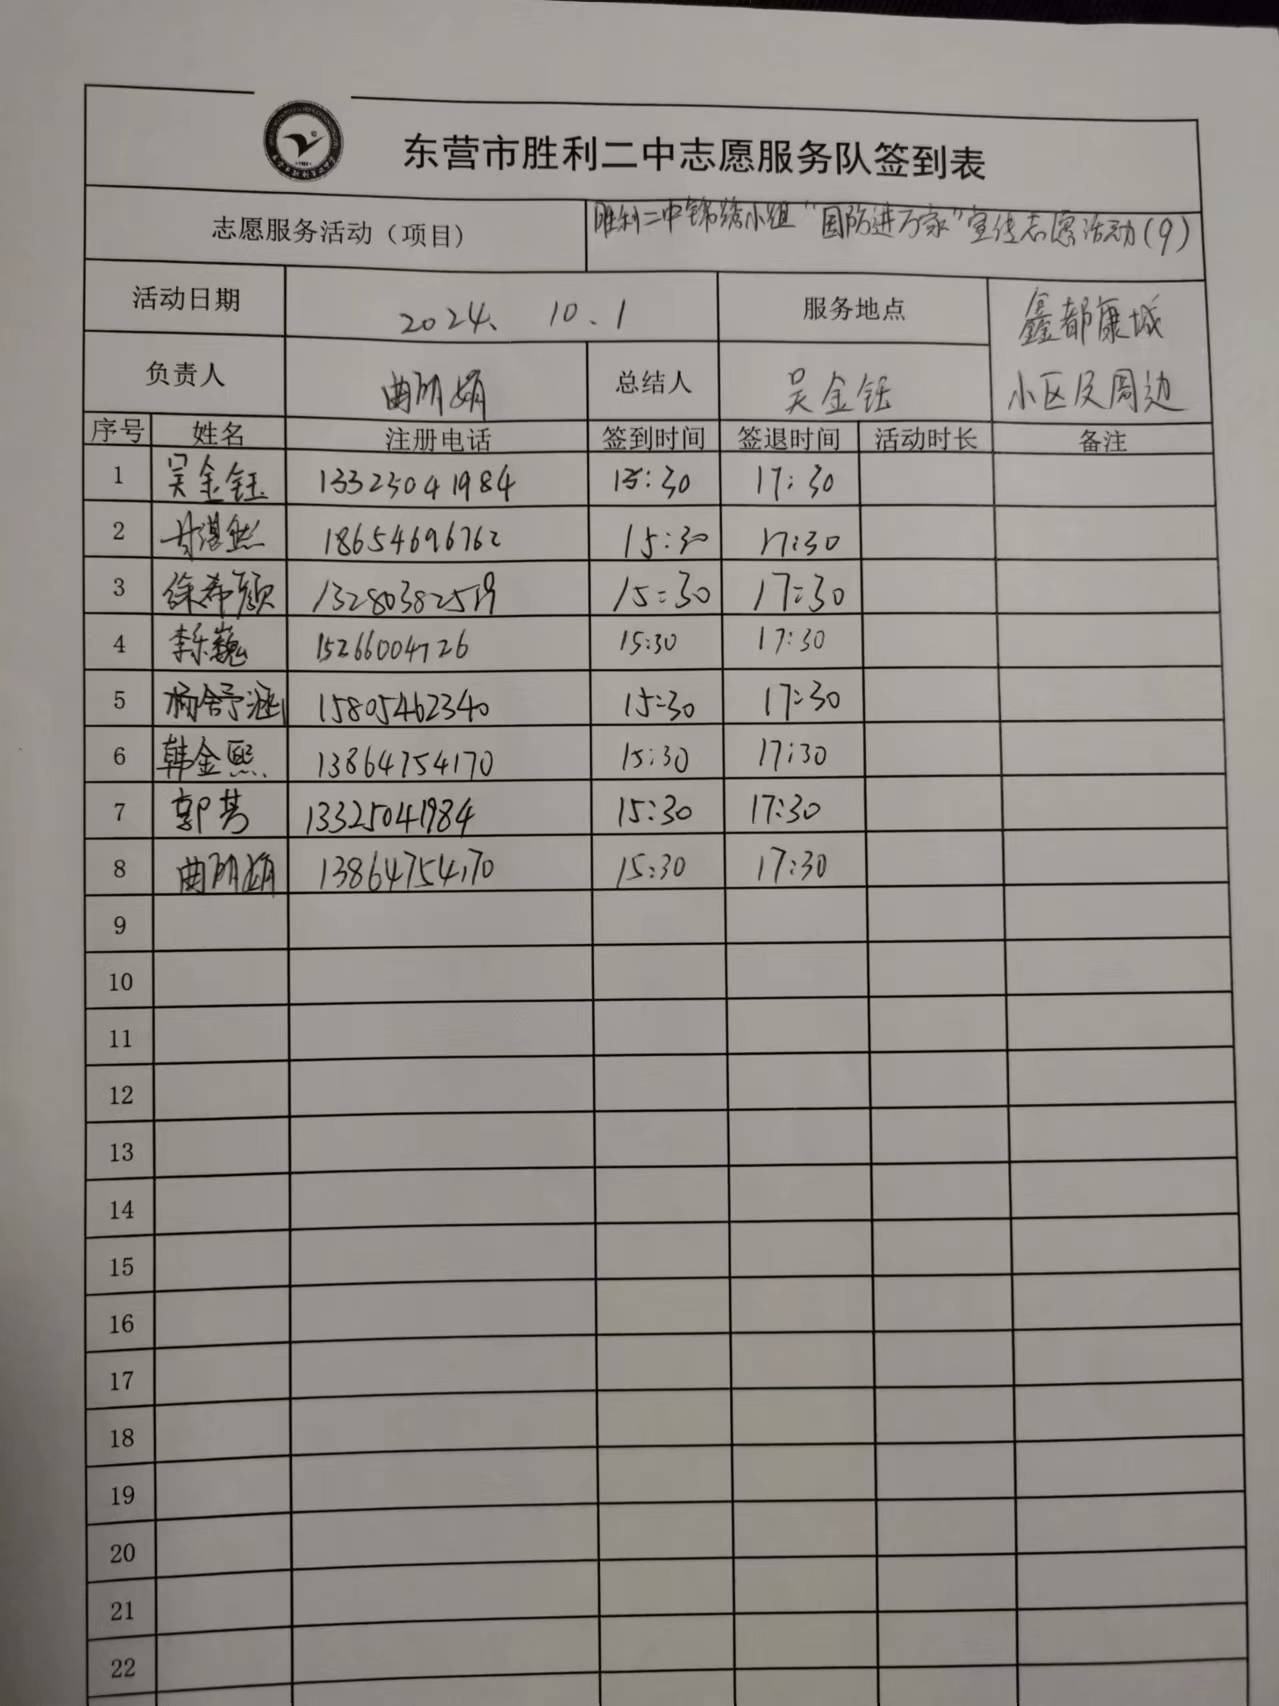 东营市胜利二中志愿服务队签到表
志愿服务活动（项目） 胜利二中锦绣小组“国防进万家”宣传志愿活动(9)
活动日期 2024. 10.1 服务地点 鑫都康城
小区及周边
负责人 曲明娟 总结人 吴金钰
序号 姓名 注册电话 签到时间 签退时间 活动时长 备注
1 吴金钰 13325041984 15:30 17:30
2 湛然 18654696762 15:30 17:30
3 徐希颜 13280382519 15:30 17:30
4 李乐巍 15266004726 15:30 17:30
5 杨舒涵 15805462340 15:30 17:30
6 韩金熙 13864754170 15:30 17:30
7 郭芳 13325041984 15:30 17:30
8 曲明娟 13864754170 15:30 17:30
9
10
11
12
13
14
15
16
17
18
19
20
21
22